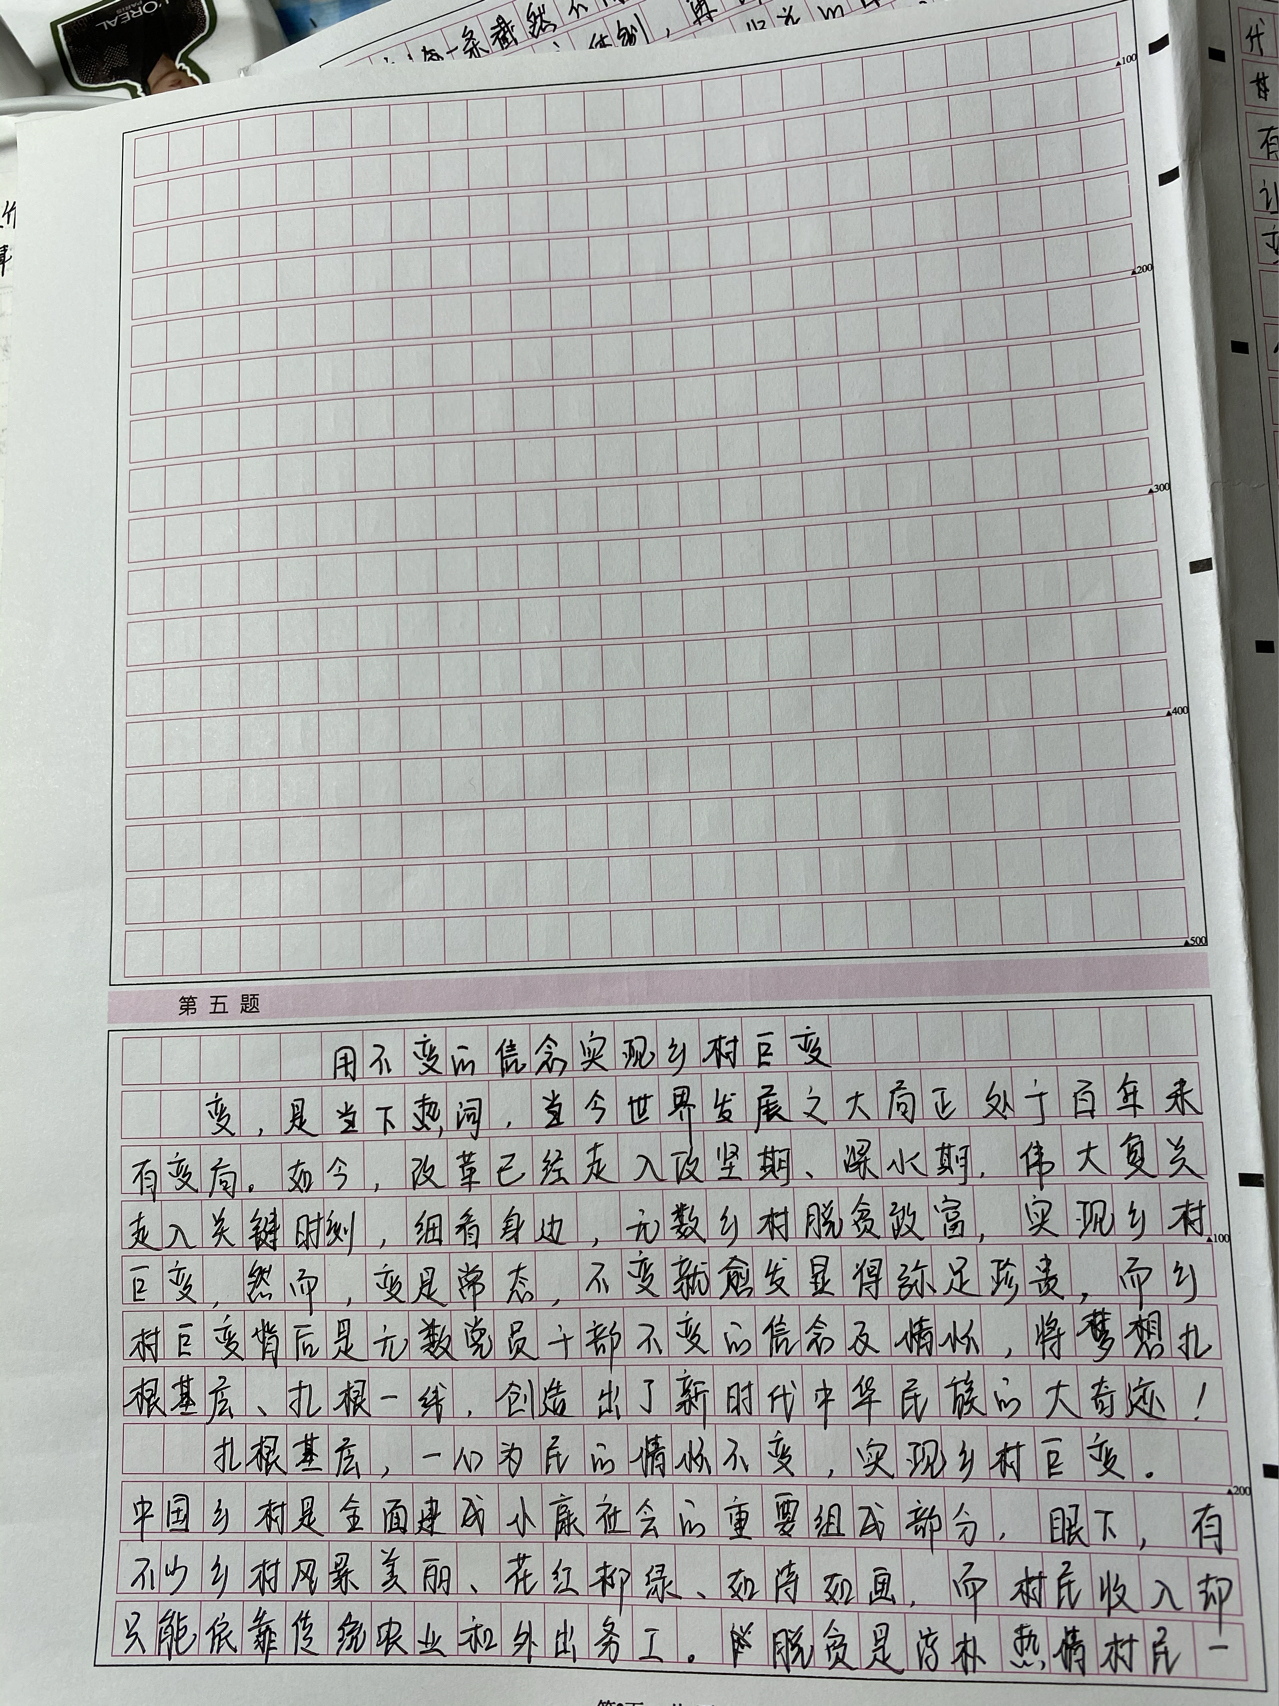 L'ORÉAL
PARIS
一条截然不
代
有
让
变
▲100
▲200
▲300
▲400
▲500
第五题
用不变的信念实现乡村巨变
变，是当下热词，当今世界发展之大局正处于百年未
有变局。如今，改革已经走入攻坚期、深水期，伟大复兴
走入关键时刻，细看身边，无数乡村脱贫致富，实现乡村
▲100
巨变，然而，变是常态，不变就愈发显得弥足珍贵，而乡
村巨变背后是无数党员干部不变的信念及情怀，将梦想扎
根基层、扎根一线，创造出了新时代中华民族的大奇迹！
扎根基层，一心为民的情怀不变，实现乡村巨变。
▲200
中国乡村是全面建成小康社会的重要组成部分，眼下，有
不少乡村风景美丽、花红柳绿、如诗如画，而村民收入却
只能依靠传统农业和外出务工。脱贫是淳朴热情村民一